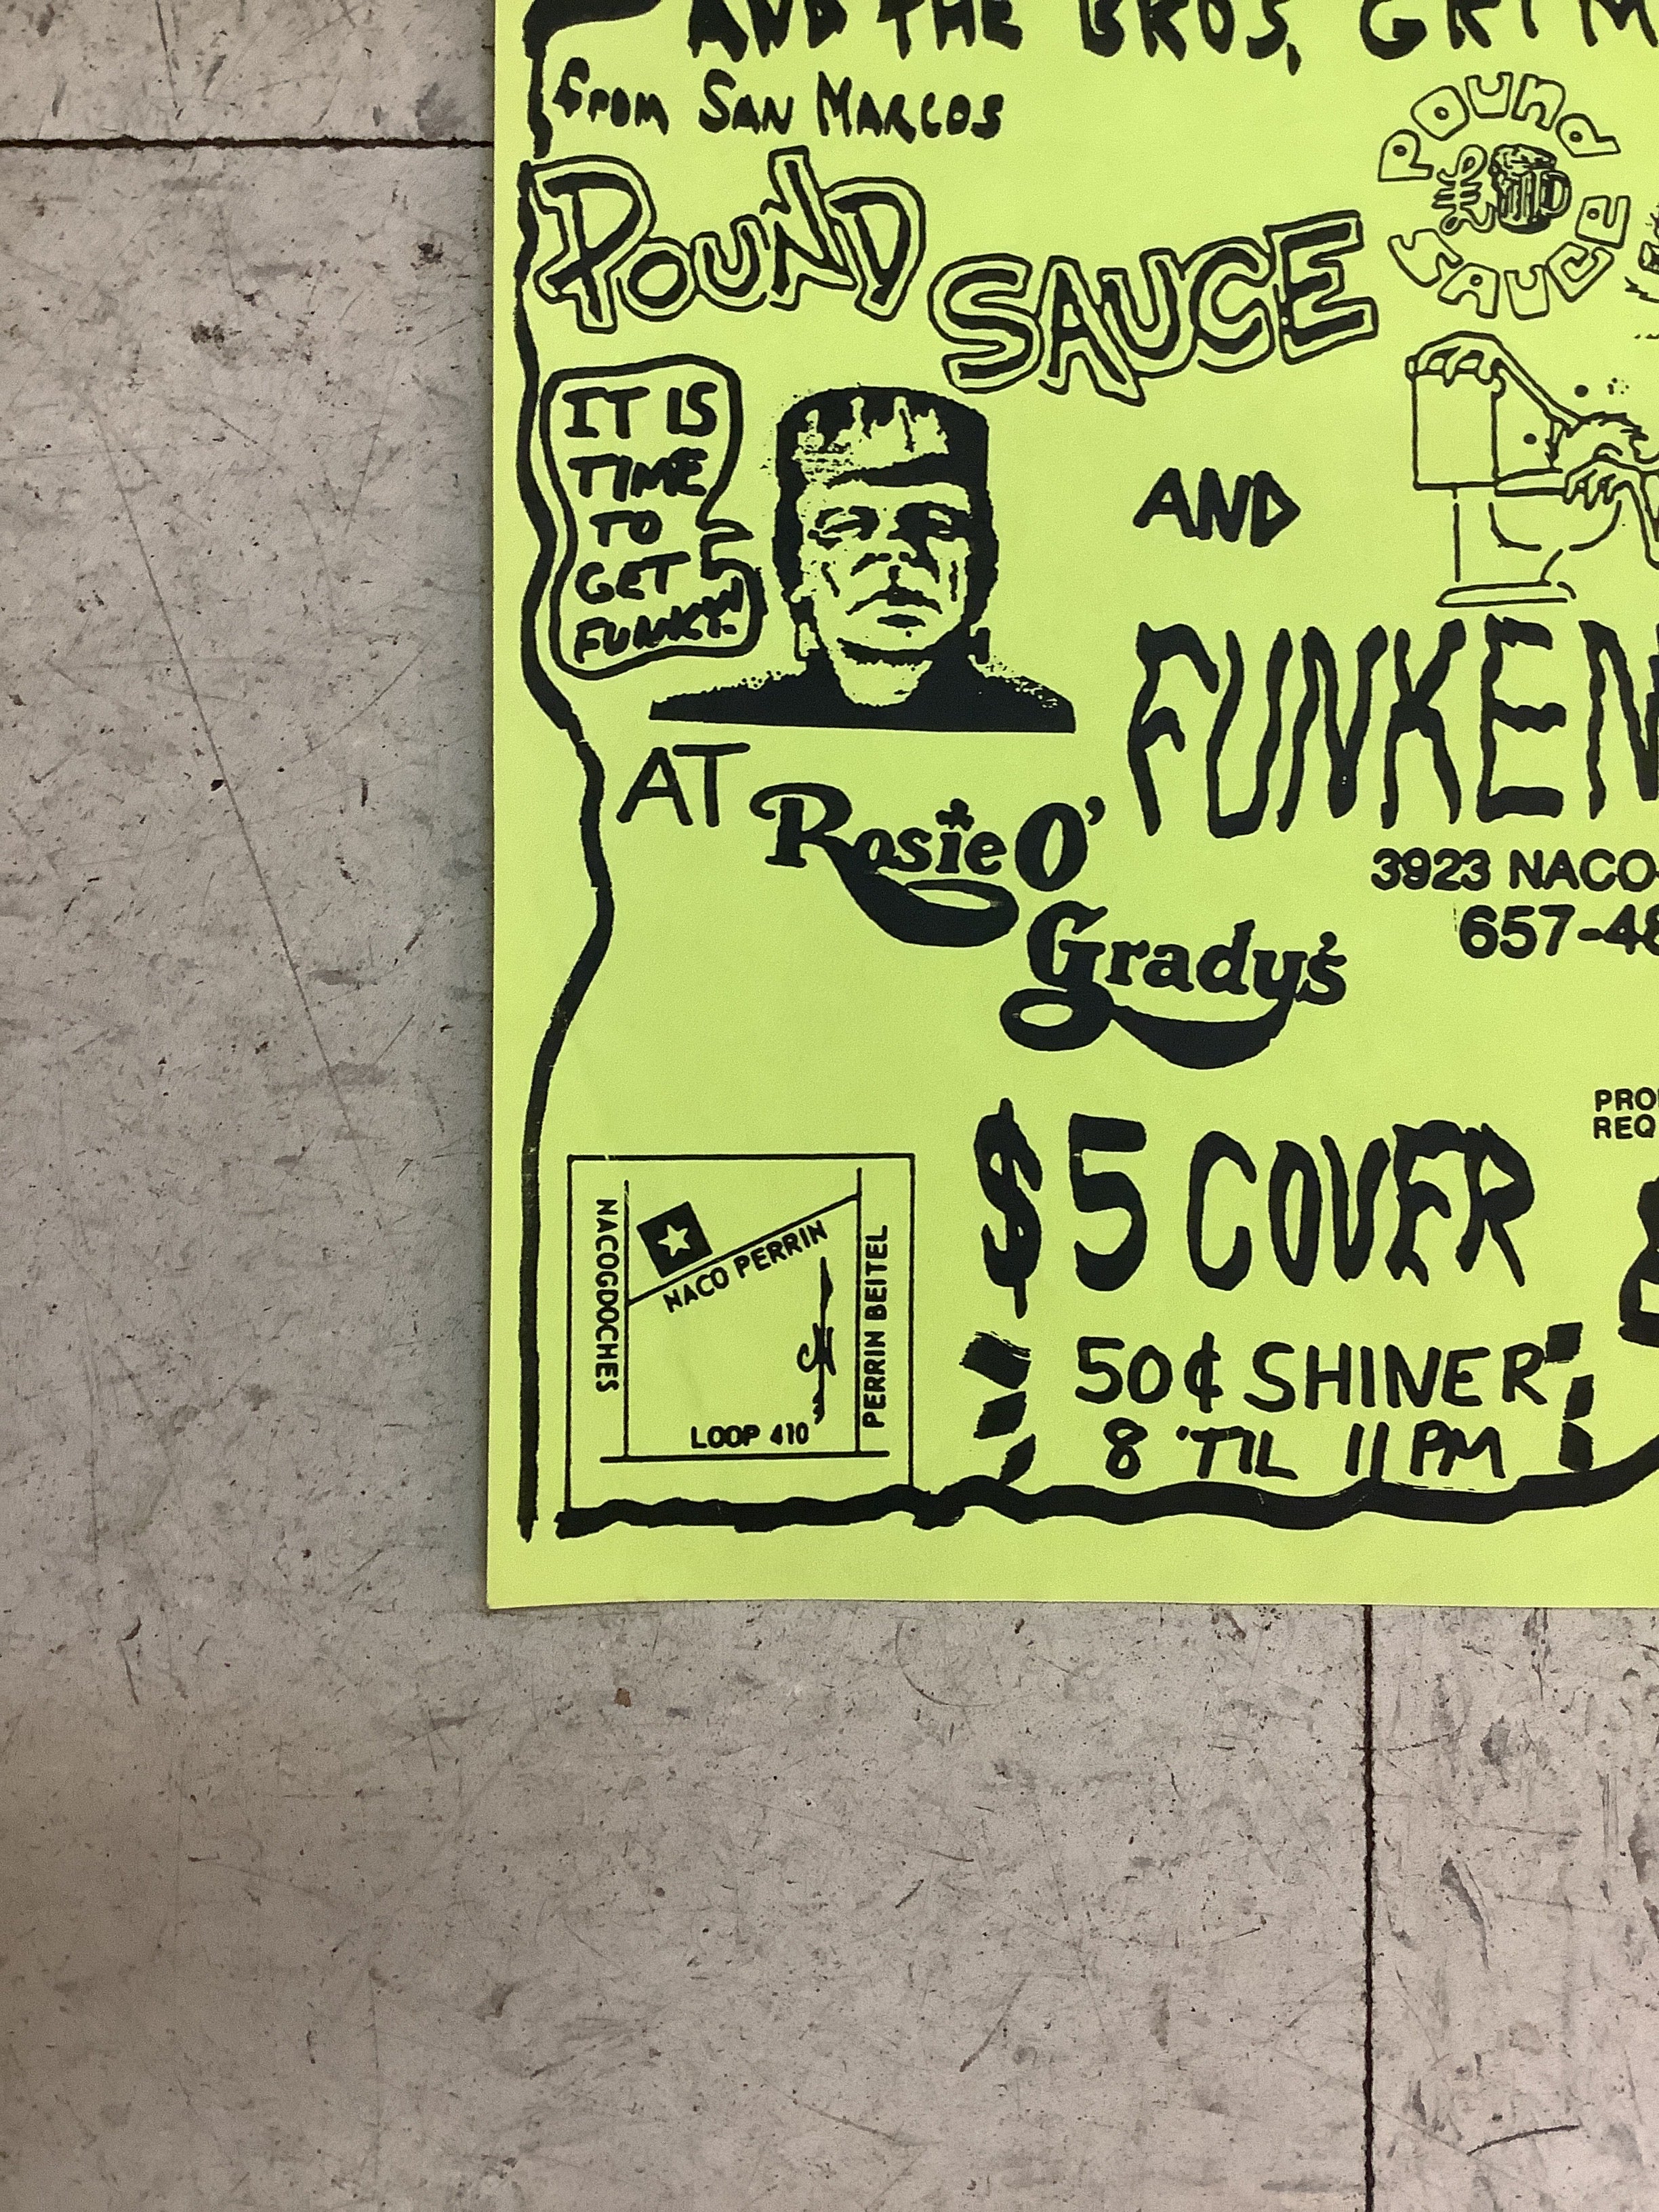 AND THE BROS. GRIM
from SAN MARCOS
POUND SAUCE
POUND SAUCE
IT IS
TIME
TO
GET
FUNKY!
AND
FUNKEN
AT Rosie O'
Grady's
3923 NACO-
657-48
PRO
REQ
$5 COVER
50¢ SHINER
8 'TIL 11 PM
NACOGDOCHES
NACO PERRIN
PERRIN BEITEL
LOOP 410